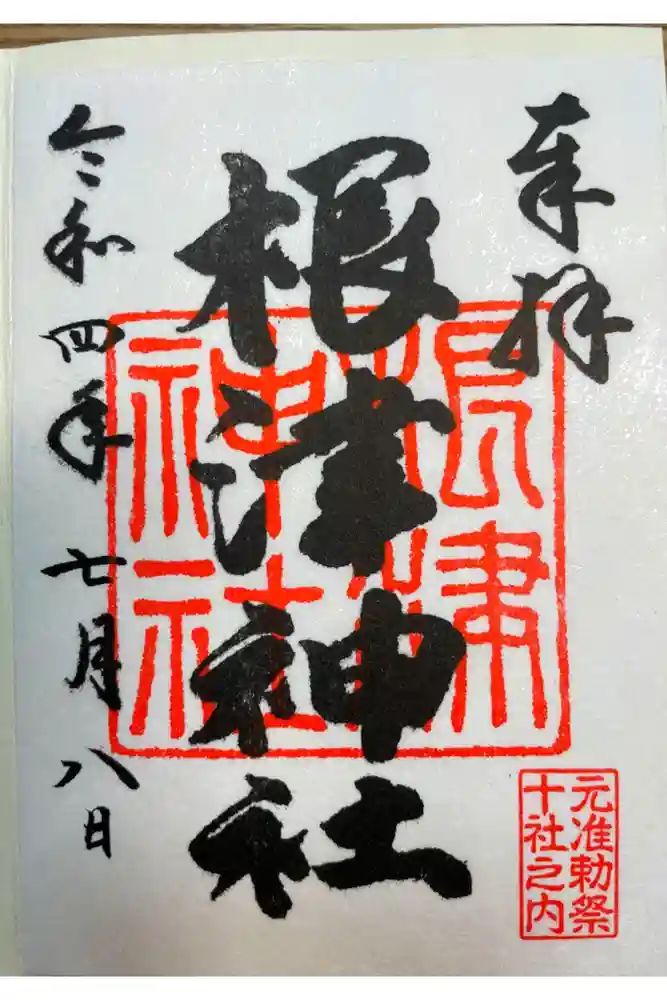 奉拝
根津神社
根津
神社
元准勅祭
十社之内
令和四年七月八日